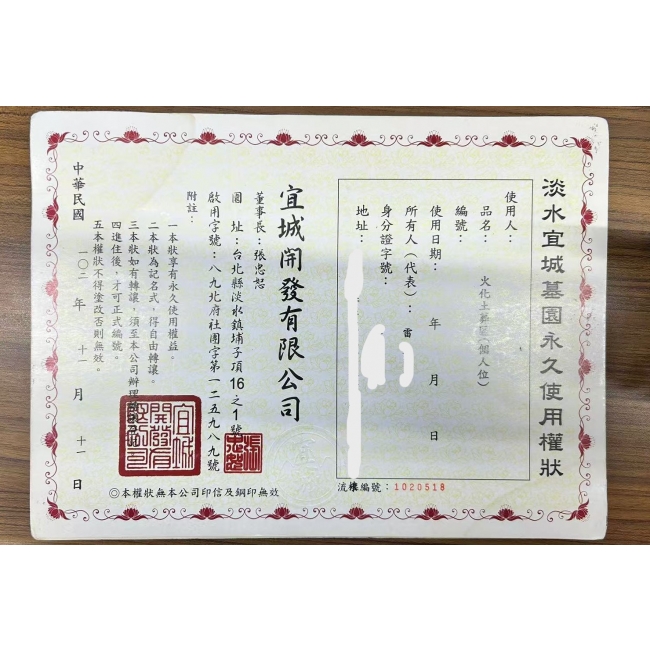 淡水宜城墓園永久使用權狀
使用人：
品名：火化土葬區（個人位）
編號：
使用日期：　年　月　日
所有人（代表）：雷
身分證字號：
地址：
流水編號：1020518
宜城開發有限公司
董事長：張忠恕
園址：台北縣淡水鎮埔子頂16之1號
啟用字號：八九北府社團字第一二五九八九號
附註：
一本狀享有永久使用權益。
二本狀為記名式，得自由轉讓。
三本狀如有轉讓，須至本公司辦理
四進住後，才可正式編號。
五本權狀不得塗改否則無效。
中華民國　一〇二年　十一月　十一日
宜城開發有限公司
張忠恕
◎本權狀無本公司印信及鋼印無效